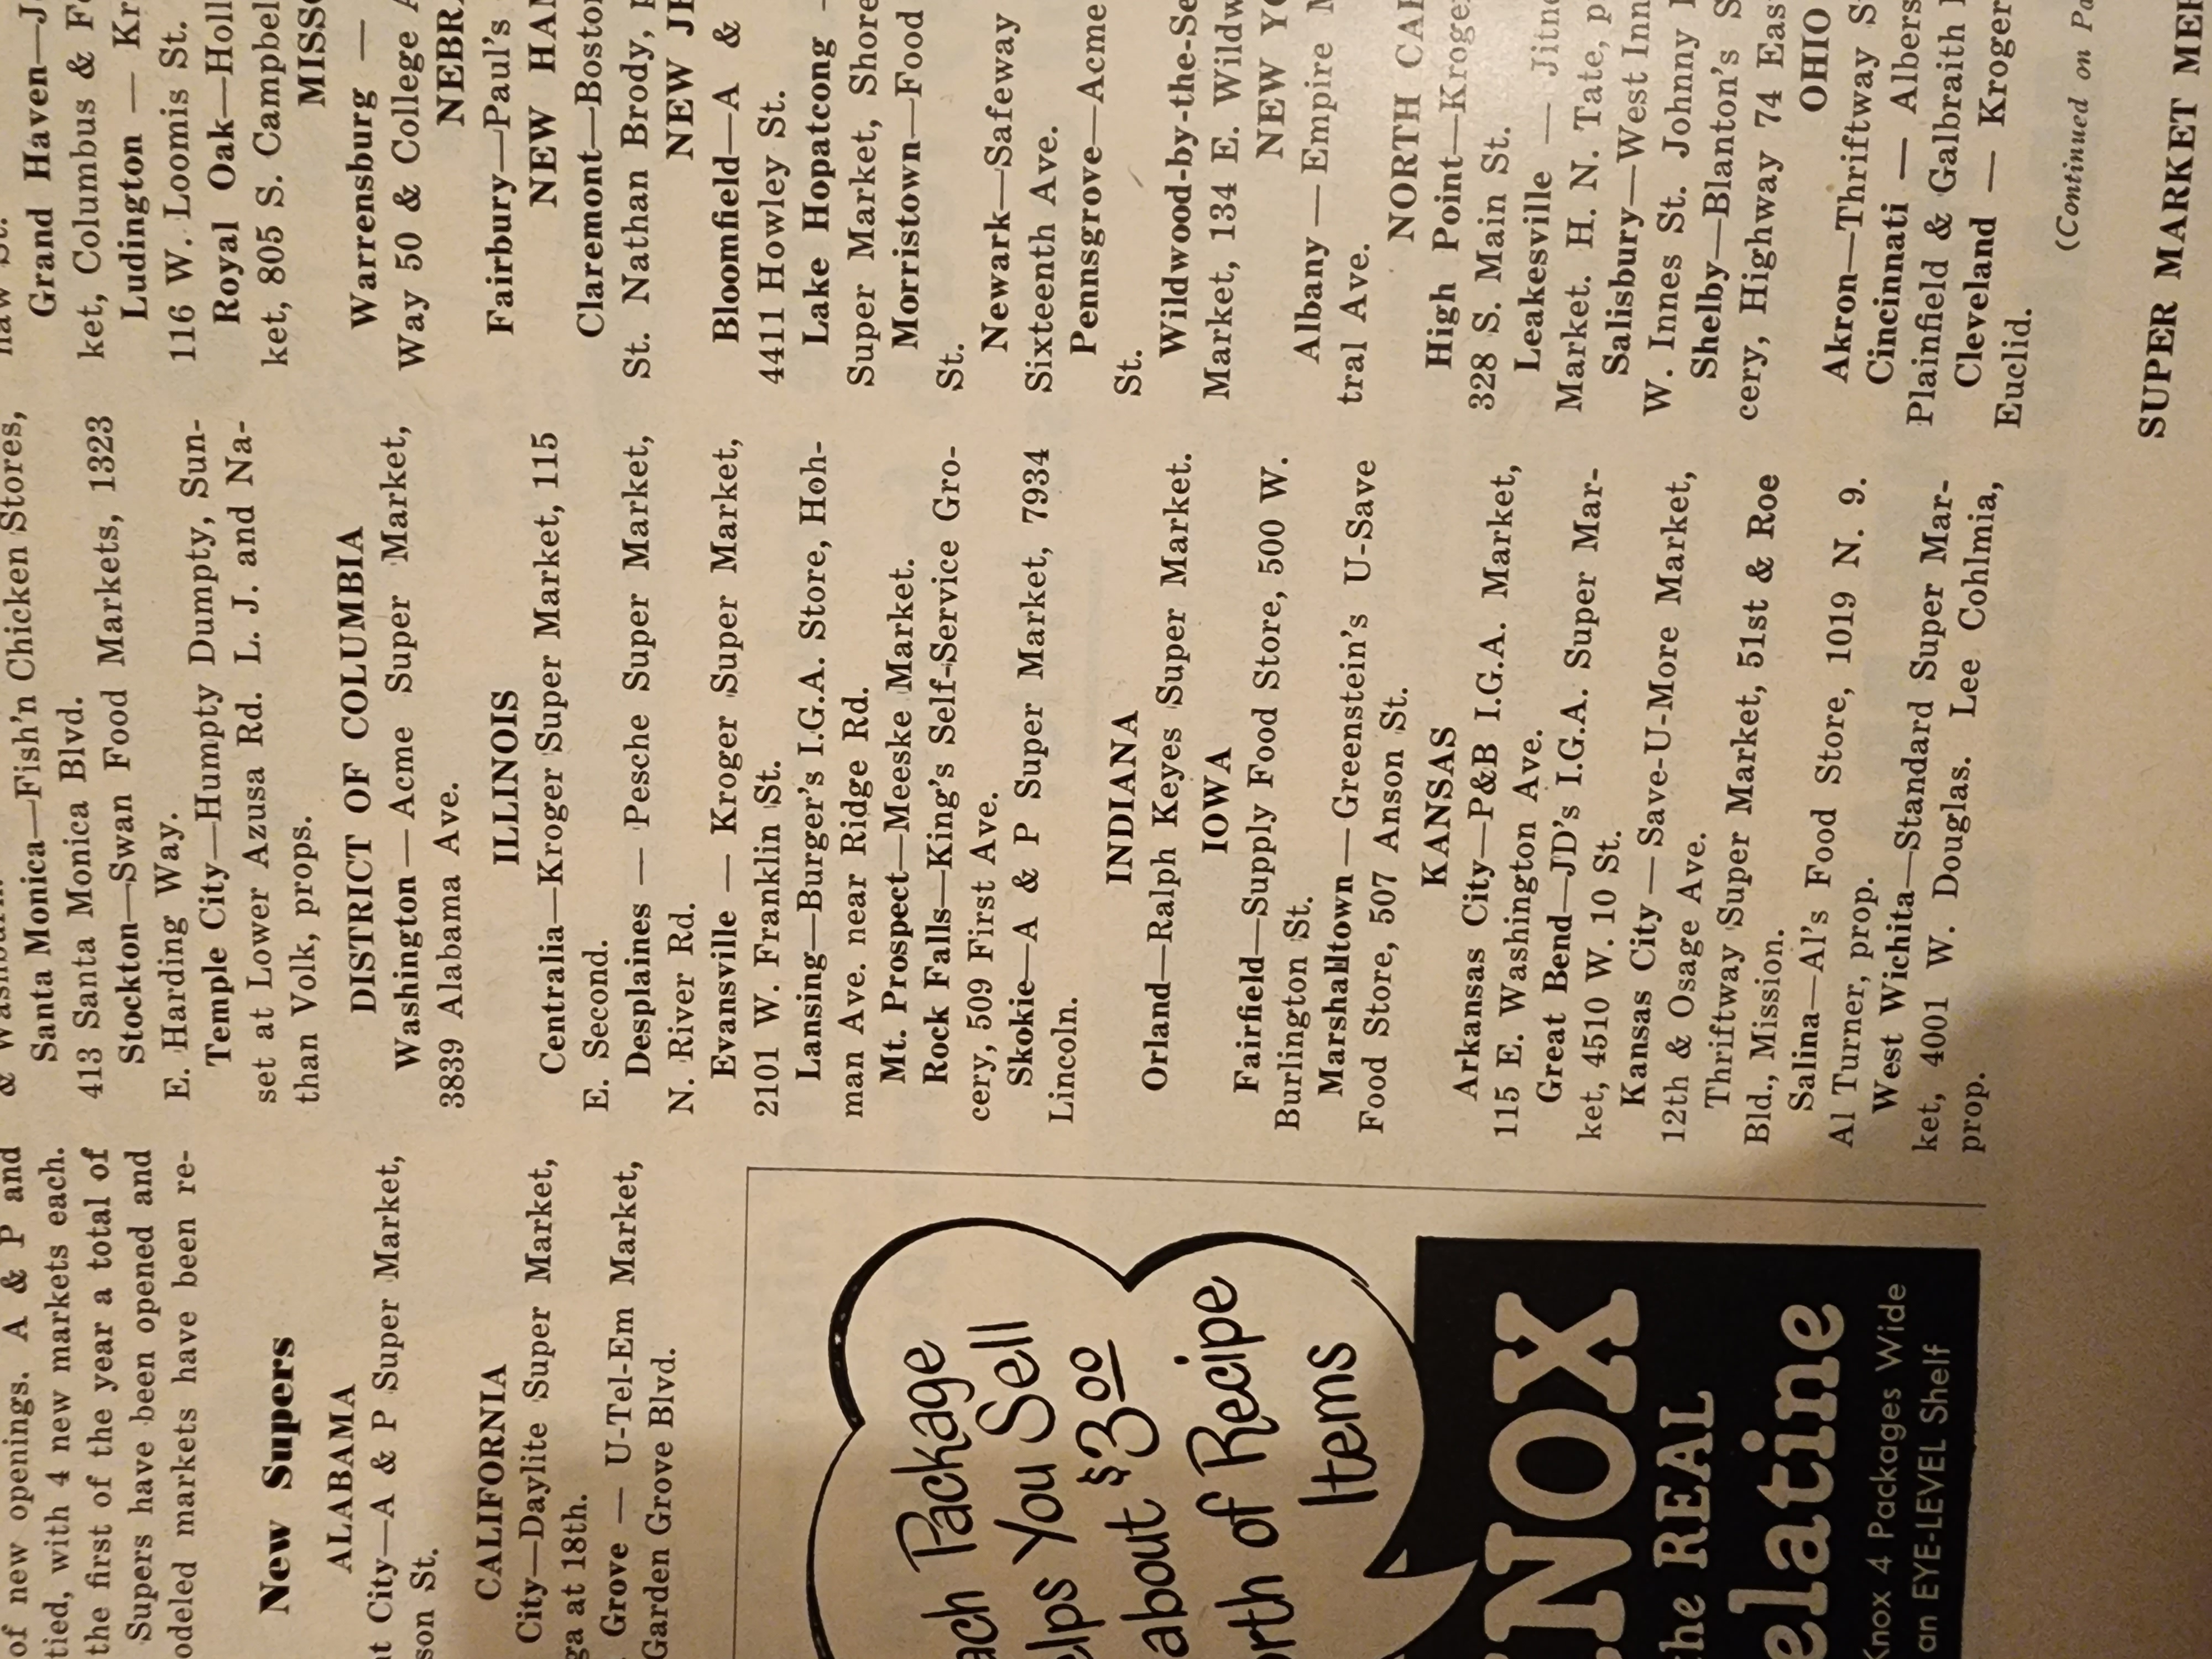 of new openings. A & P and
tied, with 4 new markets each.
the first of the year a total of
Supers have been opened and
odeled markets have been re-
New Supers
ALABAMA
City—A & P Super Market,
son St.
CALIFORNIA
City—Daylite Super Market,
ga at 18th.
Grove — U-Tel-Em Market,
Garden Grove Blvd.
ach Package
elps You Sell
about $3.00
orth of Recipe
Items
NOX
the REAL
elatine
Knox 4 Packages Wide
an EYE-LEVEL Shelf
Santa Monica—Fish'n Chicken Stores,
413 Santa Monica Blvd.
Stockton—Swan Food Markets, 1323
E. Harding Way.
Temple City—Humpty Dumpty, Sun-
set at Lower Azusa Rd. L. J. and Na-
than Volk, props.
DISTRICT OF COLUMBIA
Washington — Acme Super Market,
3839 Alabama Ave.
ILLINOIS
Centralia—Kroger Super Market, 115
E. Second.
Desplaines — Pesche Super Market,
N. River Rd.
Evansville — Kroger Super Market,
2101 W. Franklin St.
Lansing—Burger's I.G.A. Store, Hoh-
man Ave. near Ridge Rd.
Mt. Prospect—Meeske Market.
Rock Falls—King's Self-Service Gro-
cery, 509 First Ave.
Skokie—A & P Super Market, 7934
Lincoln.
INDIANA
Orland—Ralph Keyes Super Market.
IOWA
Fairfield—Supply Food Store, 500 W.
Burlington St.
Marshalltown — Greenstein's U-Save
Food Store, 507 Anson St.
KANSAS
Arkansas City—P&B I.G.A. Market,
115 E. Washington Ave.
Great Bend—JD's I.G.A. Super Mar-
ket, 4510 W. 10 St.
Kansas City — Save-U-More Market,
12th & Osage Ave.
Thriftway Super Market, 51st & Roe
Bld., Mission.
Salina—Al's Food Store, 1019 N. 9.
Al Turner, prop.
West Wichita—Standard Super Mar-
ket, 4001 W. Douglas. Lee Cohlmia,
prop.
Grand Haven—J
ket, Columbus & F
Ludington — Kr
116 W. Loomis St.
Royal Oak—Holl
ket, 805 S. Campbel
MISSO
Warrensburg —
Way 50 & College A
NEBRA
Fairbury—Paul's
NEW HAN
Claremont—Boston
St. Nathan Brody, p
NEW JE
Bloomfield—A &
4411 Howley St.
Lake Hopatcong –
Super Market, Shore
Morristown—Food
St.
Newark—Safeway
Sixteenth Ave.
Pennsgrove—Acme
St.
Wildwood-by-the-Se
Market, 134 E. Wildw
NEW YO
Albany — Empire M
tral Ave.
NORTH CAR
High Point—Kroger
328 S. Main St.
Leakesville — Jitne
Market. H. N. Tate, p
Salisbury—West Inn
W. Innes St. Johnny
Shelby—Blanton's S
cery, Highway 74 Eas
OHIO
Akron—Thriftway S
Cincinnati — Albers
Plainfield & Galbraith
Cleveland — Kroger
Euclid.
(Continued on Pa
SUPER MARKET MER